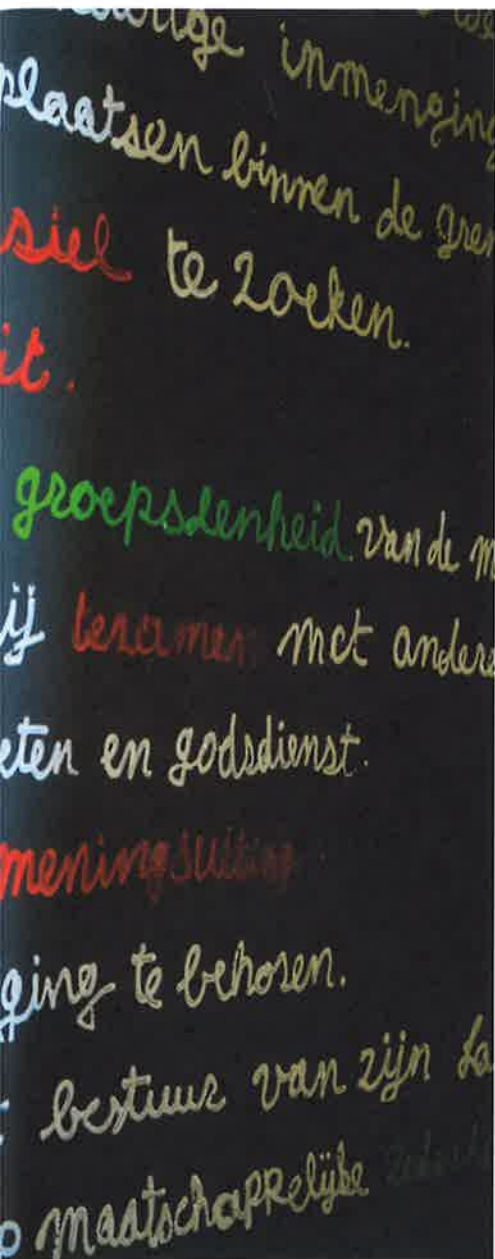 urige inmenging
plaatsen binnen de gren
siel te zoeken.
it.
groepsdenheid van de m
ij tezamen met andere
eten en godsdienst.
meningsuiting
ging te behoren.
t bestuur van zijn la
p maatschappelijke